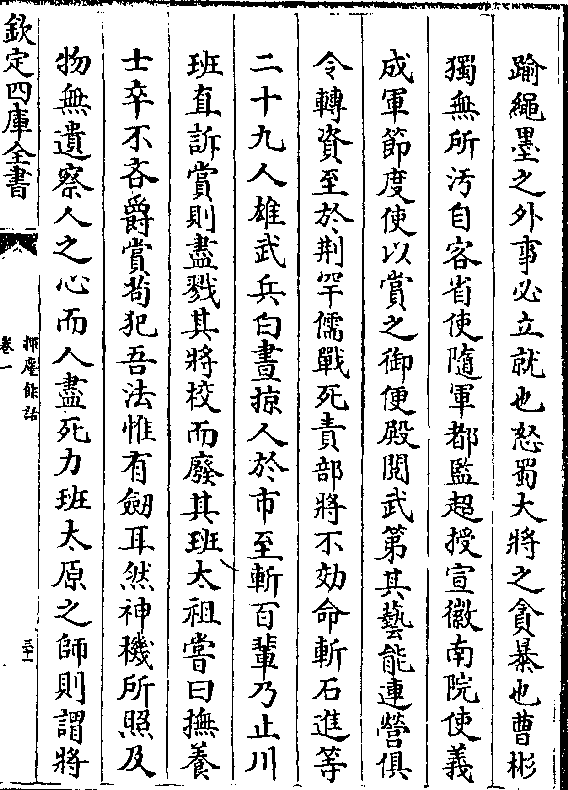 踰繩墨之外事必立就也怒蜀大將之貪暴也曹彬
獨無所汚自客省使隨軍都監超授宣徽南院使義
成軍節度使以賞之御便殿閱武第其藝能連營俱
令轉資至於荆罕儒戰死責部將不効命斬石進等
二十九人雄武兵白晝掠人於市至斬百輩乃止川
班直訴賞則盡戮其將校而廢其班太祖嘗曰撫養
士卒不吝爵賞茍犯吾法惟有劒耳然神機所照及
物無遺察人之心而人盡死力班太原之師則謂將
欽定四庫全書
揮麈餘話
卷一
三十一